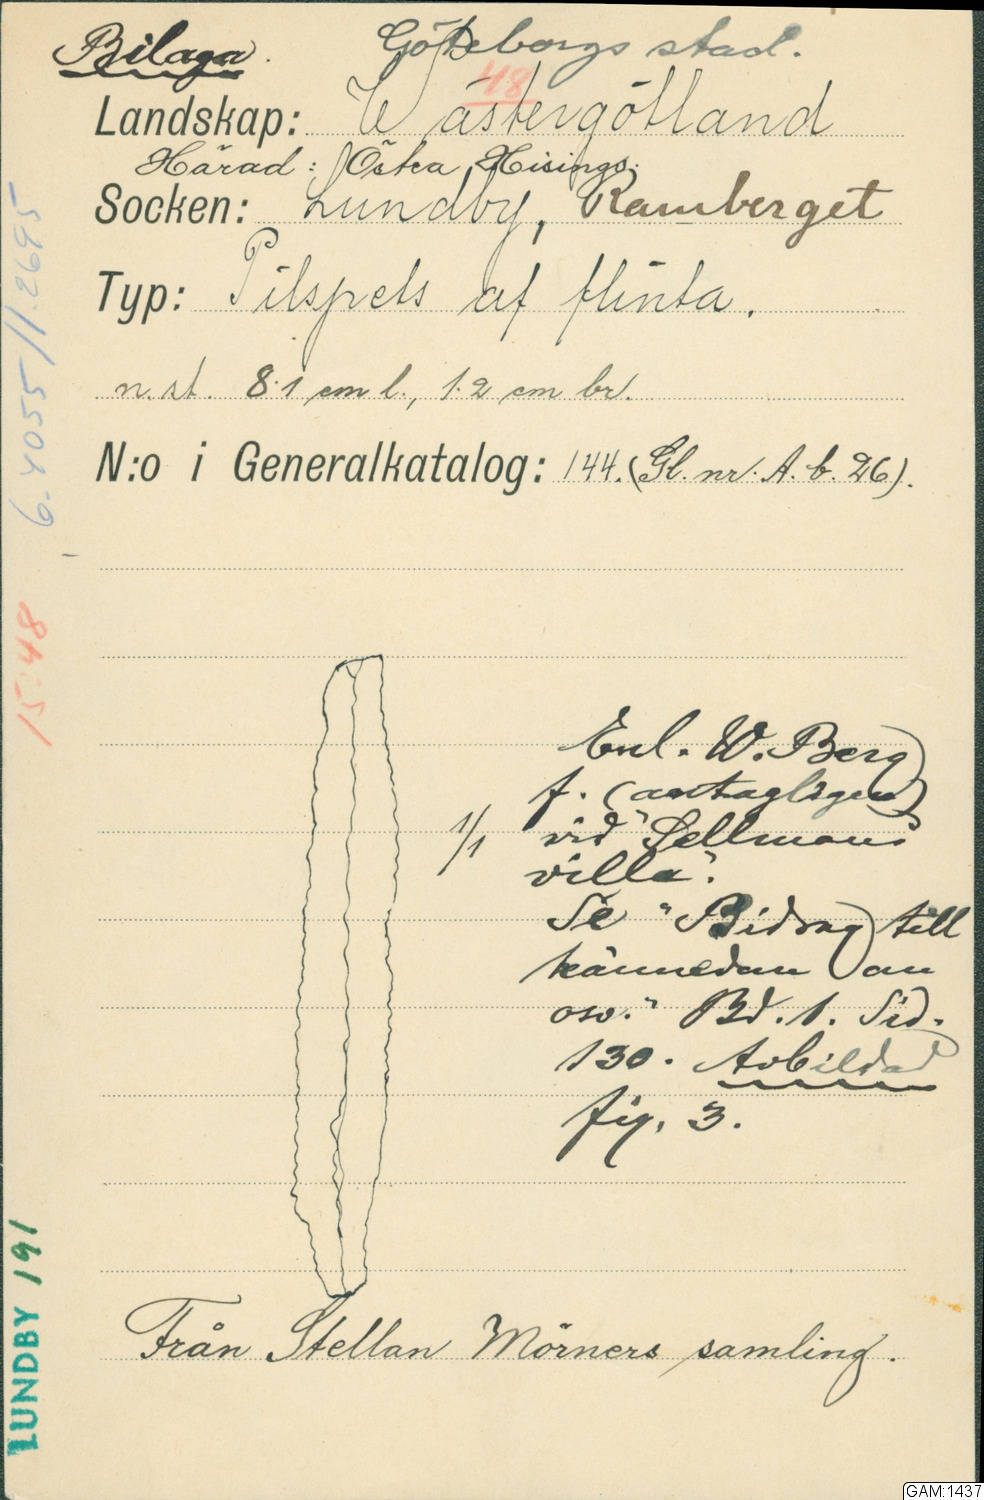 Bilaga.
Göteborgs stad.
48
Landskap: Wästergötland
Härad: Östra Hisings.
Socken: Lundby, Ramberget
Typ: Pilspets af flinta.
n. st. 8.1 cm l., 1.2 cm br.
N:o i Generalkatalog: 144. (Gl. nr. A. b. 26).
6.4055//.2695
15:48
1/1
Enl. W. Berg
f. (antagligen)
vid "Sellmans
villa".
Se "Bidrag till
kännedom om
osv." Bd. 1. Sid.
130. Avbildad
fig. 3.
Från Stellan Mörners samling.
LUNDBY 191
GAM:1437